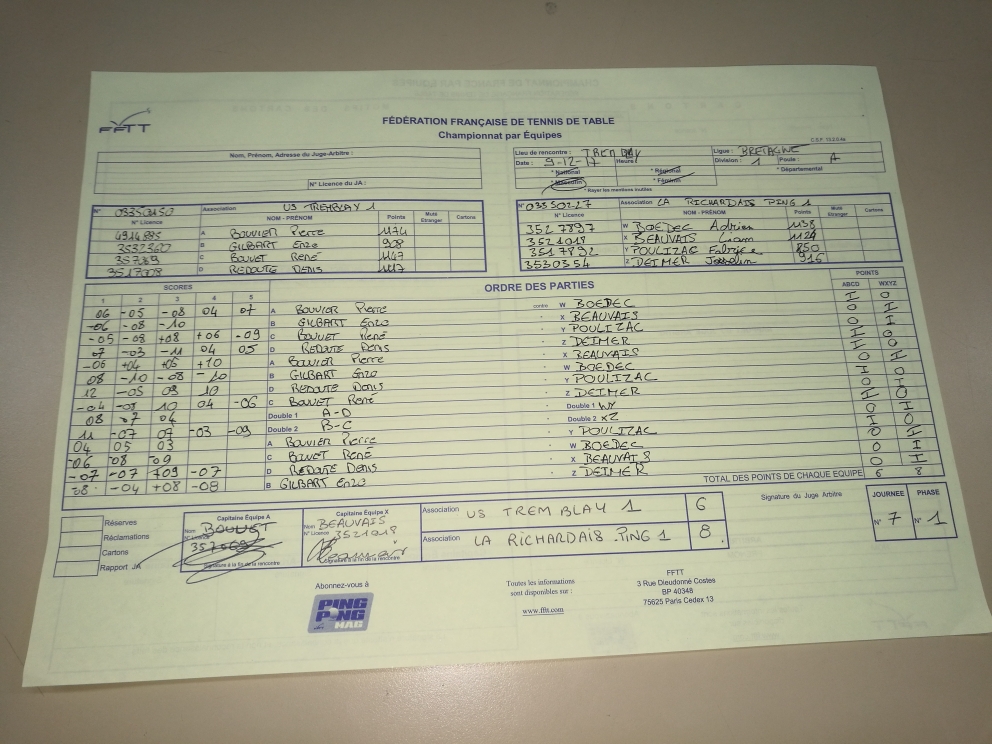 FFTT
FÉDÉRATION FRANÇAISE DE TENNIS DE TABLE
Championnat par Équipes
C.S.P. 13.2.0.4a
Nom, Prénom, Adresse du Juge-Arbitre :
N° Licence du JA :
Lieu de rencontre : TREMBLAY Ligue : BRETAGNE
Date : 9-12-17 Heure : Division : 1 Poule : A
* National * Régional * Départemental
* Masculin * Féminin
* Rayer les mentions inutiles
N° 03350150 Association US TREMBLAY 1
N° Licence NOM - PRÉNOM Points Muté Etranger Cartons
A BOUVIER Pierre 1174
B GILBART Enzo 908
C BOUVET René 1147
D REDOUTE DENIS
N° 03350227 Association LA RICHARDAIS PING 1
N° Licence NOM - PRÉNOM Points Muté Etranger Cartons
3527897 W BOEDEC Adrien 1138
3521018 X BEAUVAIS 1129
3517832 Y POULIZAC 850
3530354 Z DEIMER Josselin 916
SCORES ORDRE DES PARTIES POINTS
1 2 3 4 5 ABCD WXYZ
06 -05 -08 04 07 A BOUVIER Pierre contre W BOEDEC I 0
-06 -08 -10 B GILBART Enzo X BEAUVAIS 0 I
-05 -08 +08 +06 -09 C BOUVET René Y POULIZAC 0 I
07 -03 -11 04 05 D REDOUTE Denis Z DEIMER I 0
-06 +04 +05 +10 A BOUVIER Pierre X BEAUVAIS I 0
08 -10 -08 -10 B GILBART Enzo W BOEDEC 0 I
12 -05 09 10 D REDOUTE Denis Y POULIZAC I 0
-04 10 04 -06 C BOUVET René Z DEIMER 0 I
08 07 04 Double 1 A-D Double 1 WY I 0
11 -07 07 -03 -09 Double 2 B-C Double 2 XZ 0 I
04 05 03 A BOUVIER Pierre Y POULIZAC I 0
-06 -08 -09 C BOUVET René W BOEDEC 0 I
-07 -07 +09 -07 D REDOUTE Denis X BEAUVAIS 0 I
-04 +08 -08 B GILBART Enzo Z DEIMER 0 I
TOTAL DES POINTS DE CHAQUE EQUIPE 6 8
Réserves
Réclamations
Cartons
Rapport JA
Capitaine Équipe A
Nom BOUVET
N° Licence
Signature à la fin de la rencontre
Capitaine Équipe X
Nom BEAUVAIS
N° Licence 3521018
Signature à la fin de la rencontre
Association US TREMBLAY 1 6
Association LA RICHARDAIS PING 1 8
Signature du Juge Arbitre
JOURNEE PHASE
N° 7 N° 1
Abonnez-vous à
PING PONG MAG
Toutes les informations
sont disponibles sur :
www.fftt.com
FFTT
3 Rue Dieudonné Costes
BP 40348
75625 Paris Cedex 13